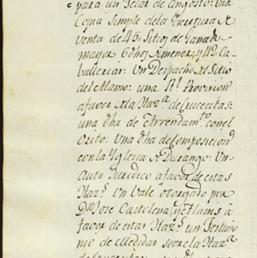 para un Telar de angosto: Una
Copia Simple dela Escriptura de
Venta de 15 Sitios de Ganado
mayor 6 de
vallerias: Un Despacho del Sitio
del Alamo: Una Rl. Provicion
afavor de la Haz.a
de una
una dha de Arrendam.to con el
Una dha de Composicion
con la Yglecia de Durango: Un
auto Juridico afavor de estas
Haz.s Un Vale otorgado por
Dn. Jose Castolena, y Alanis á
favor de estas Haz.s Un Testimo
nio de Medidas sobre la Haz.a